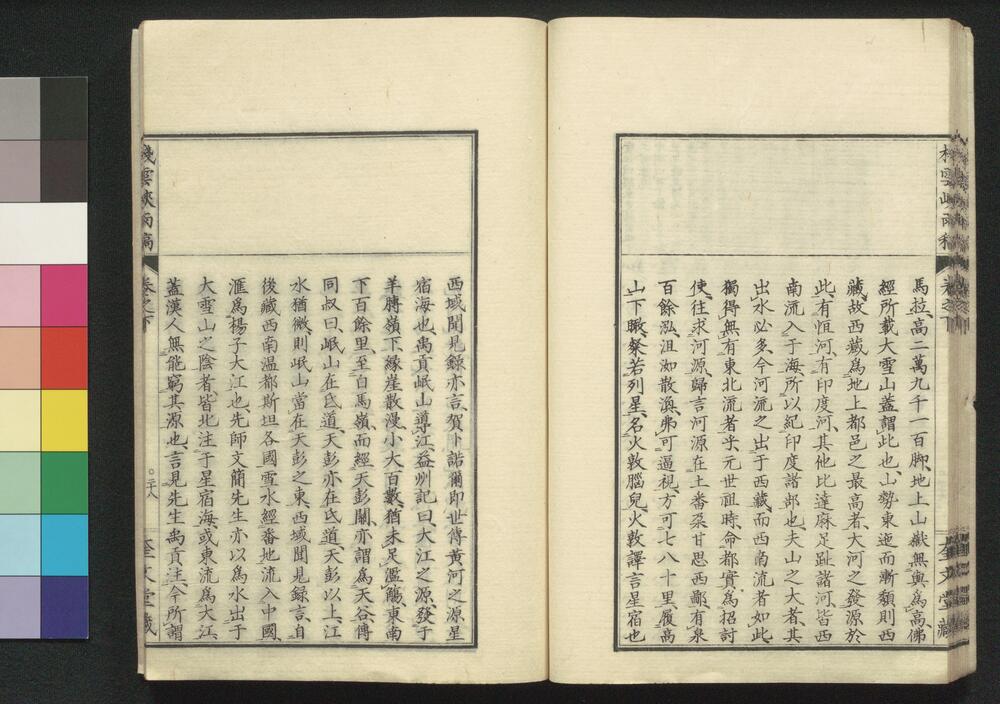 馬拉、高二萬九千一百脚、地上山嶽無與爲高、佛
經所載大雪山蓋謂此也、山勢東迤而漸頽則西
藏、故西藏爲地上都邑之最高者、大河之發源於
此、有恒河、有印度河、其他比達麻足趾諸河、皆西
南流入于海、所以紀印度諸部也、夫山之大者、其
出水必多、今河流之出于西藏而西南流者如此、
獨得無有東北流者乎、元世祖時、命都實爲招討
使、往求河源、歸言河源在土番朶甘思西鄙、有泉
百餘泓、沮洳散渙、弗可逼視、方可七八十里、履高
山下瞰、粲若列星、名火敦腦兒、火敦譯言星宿也、
西域聞見錄亦言、賀卜諾爾即世傳黄河之源、星
宿海也、禹貢岷山導江、益州記曰、大江之源、發于
羊膊嶺下、緣崖散漫、小大百數、猶未足濫觴、東南
下百餘里、至白馬嶺、而經天彭關、亦謂爲天谷、傳
同叔曰、岷山在氐道、天彭亦在氐道、天彭以上、江
水猶微、則岷山當在天彭之東、西域聞見錄言、自
後藏西南溫都斯坦各國雪水、經番地流入中國
滙爲楊子大江也、先師文簡先生亦以爲水出于
大雪山之陰者、皆北注于星宿海、或東流爲大江、
蓋漢人無能窮其源也、言見先生禹貢注、今所謂
棧雲峽雨稿
卷之下
○三十八
奎文堂藏